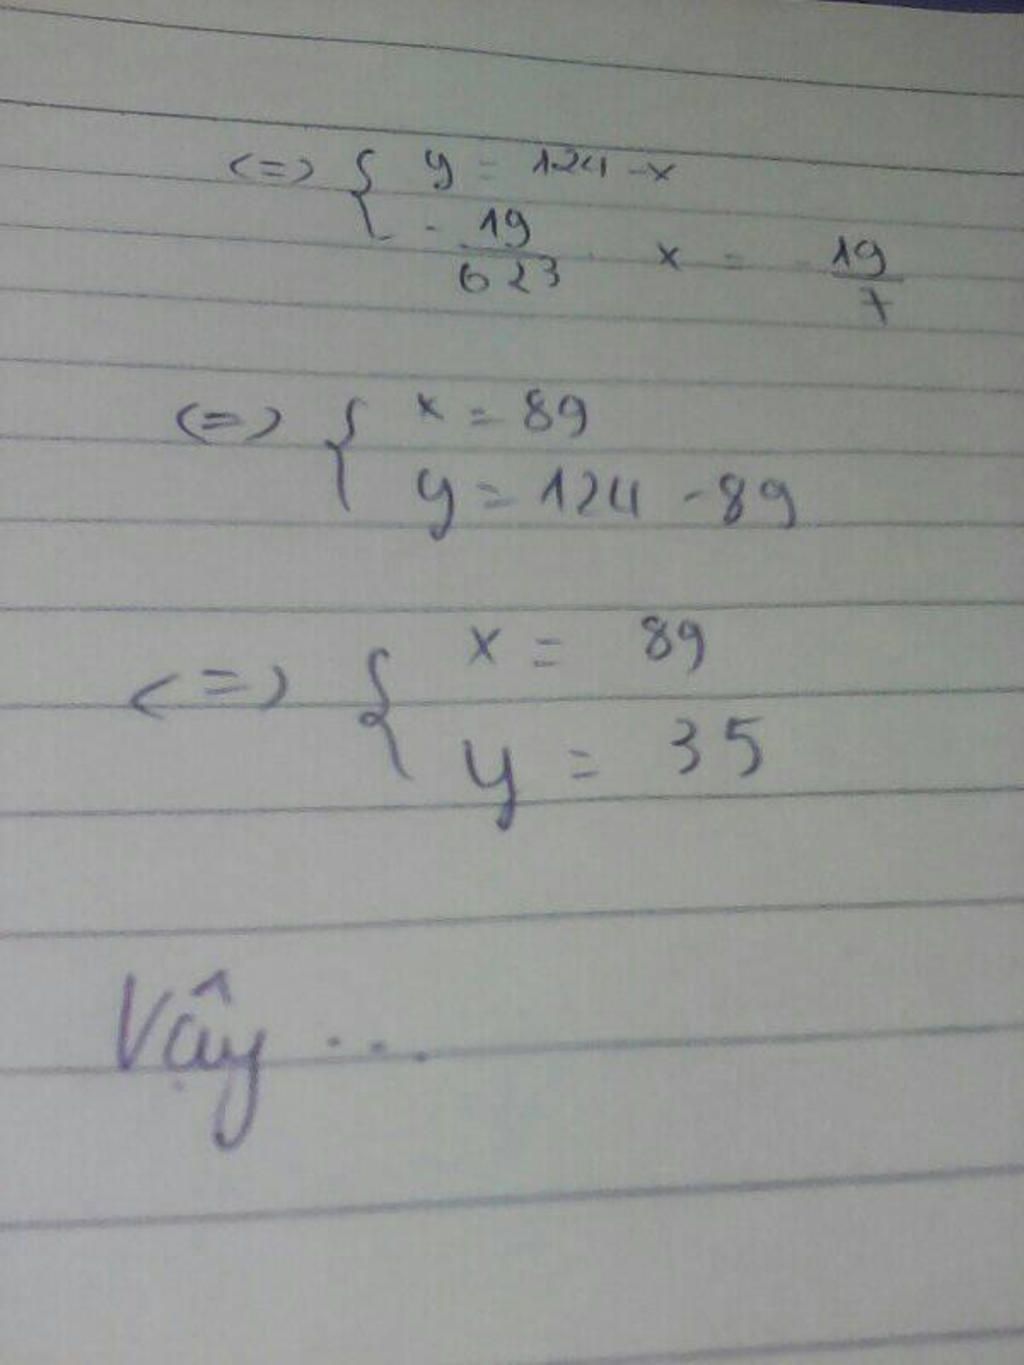 <=> { y = 124 - x
- 19/623 x = - 19/7
<=> { x = 89
y = 124 - 89
<=> { x = 89
y = 35
Vậy ...